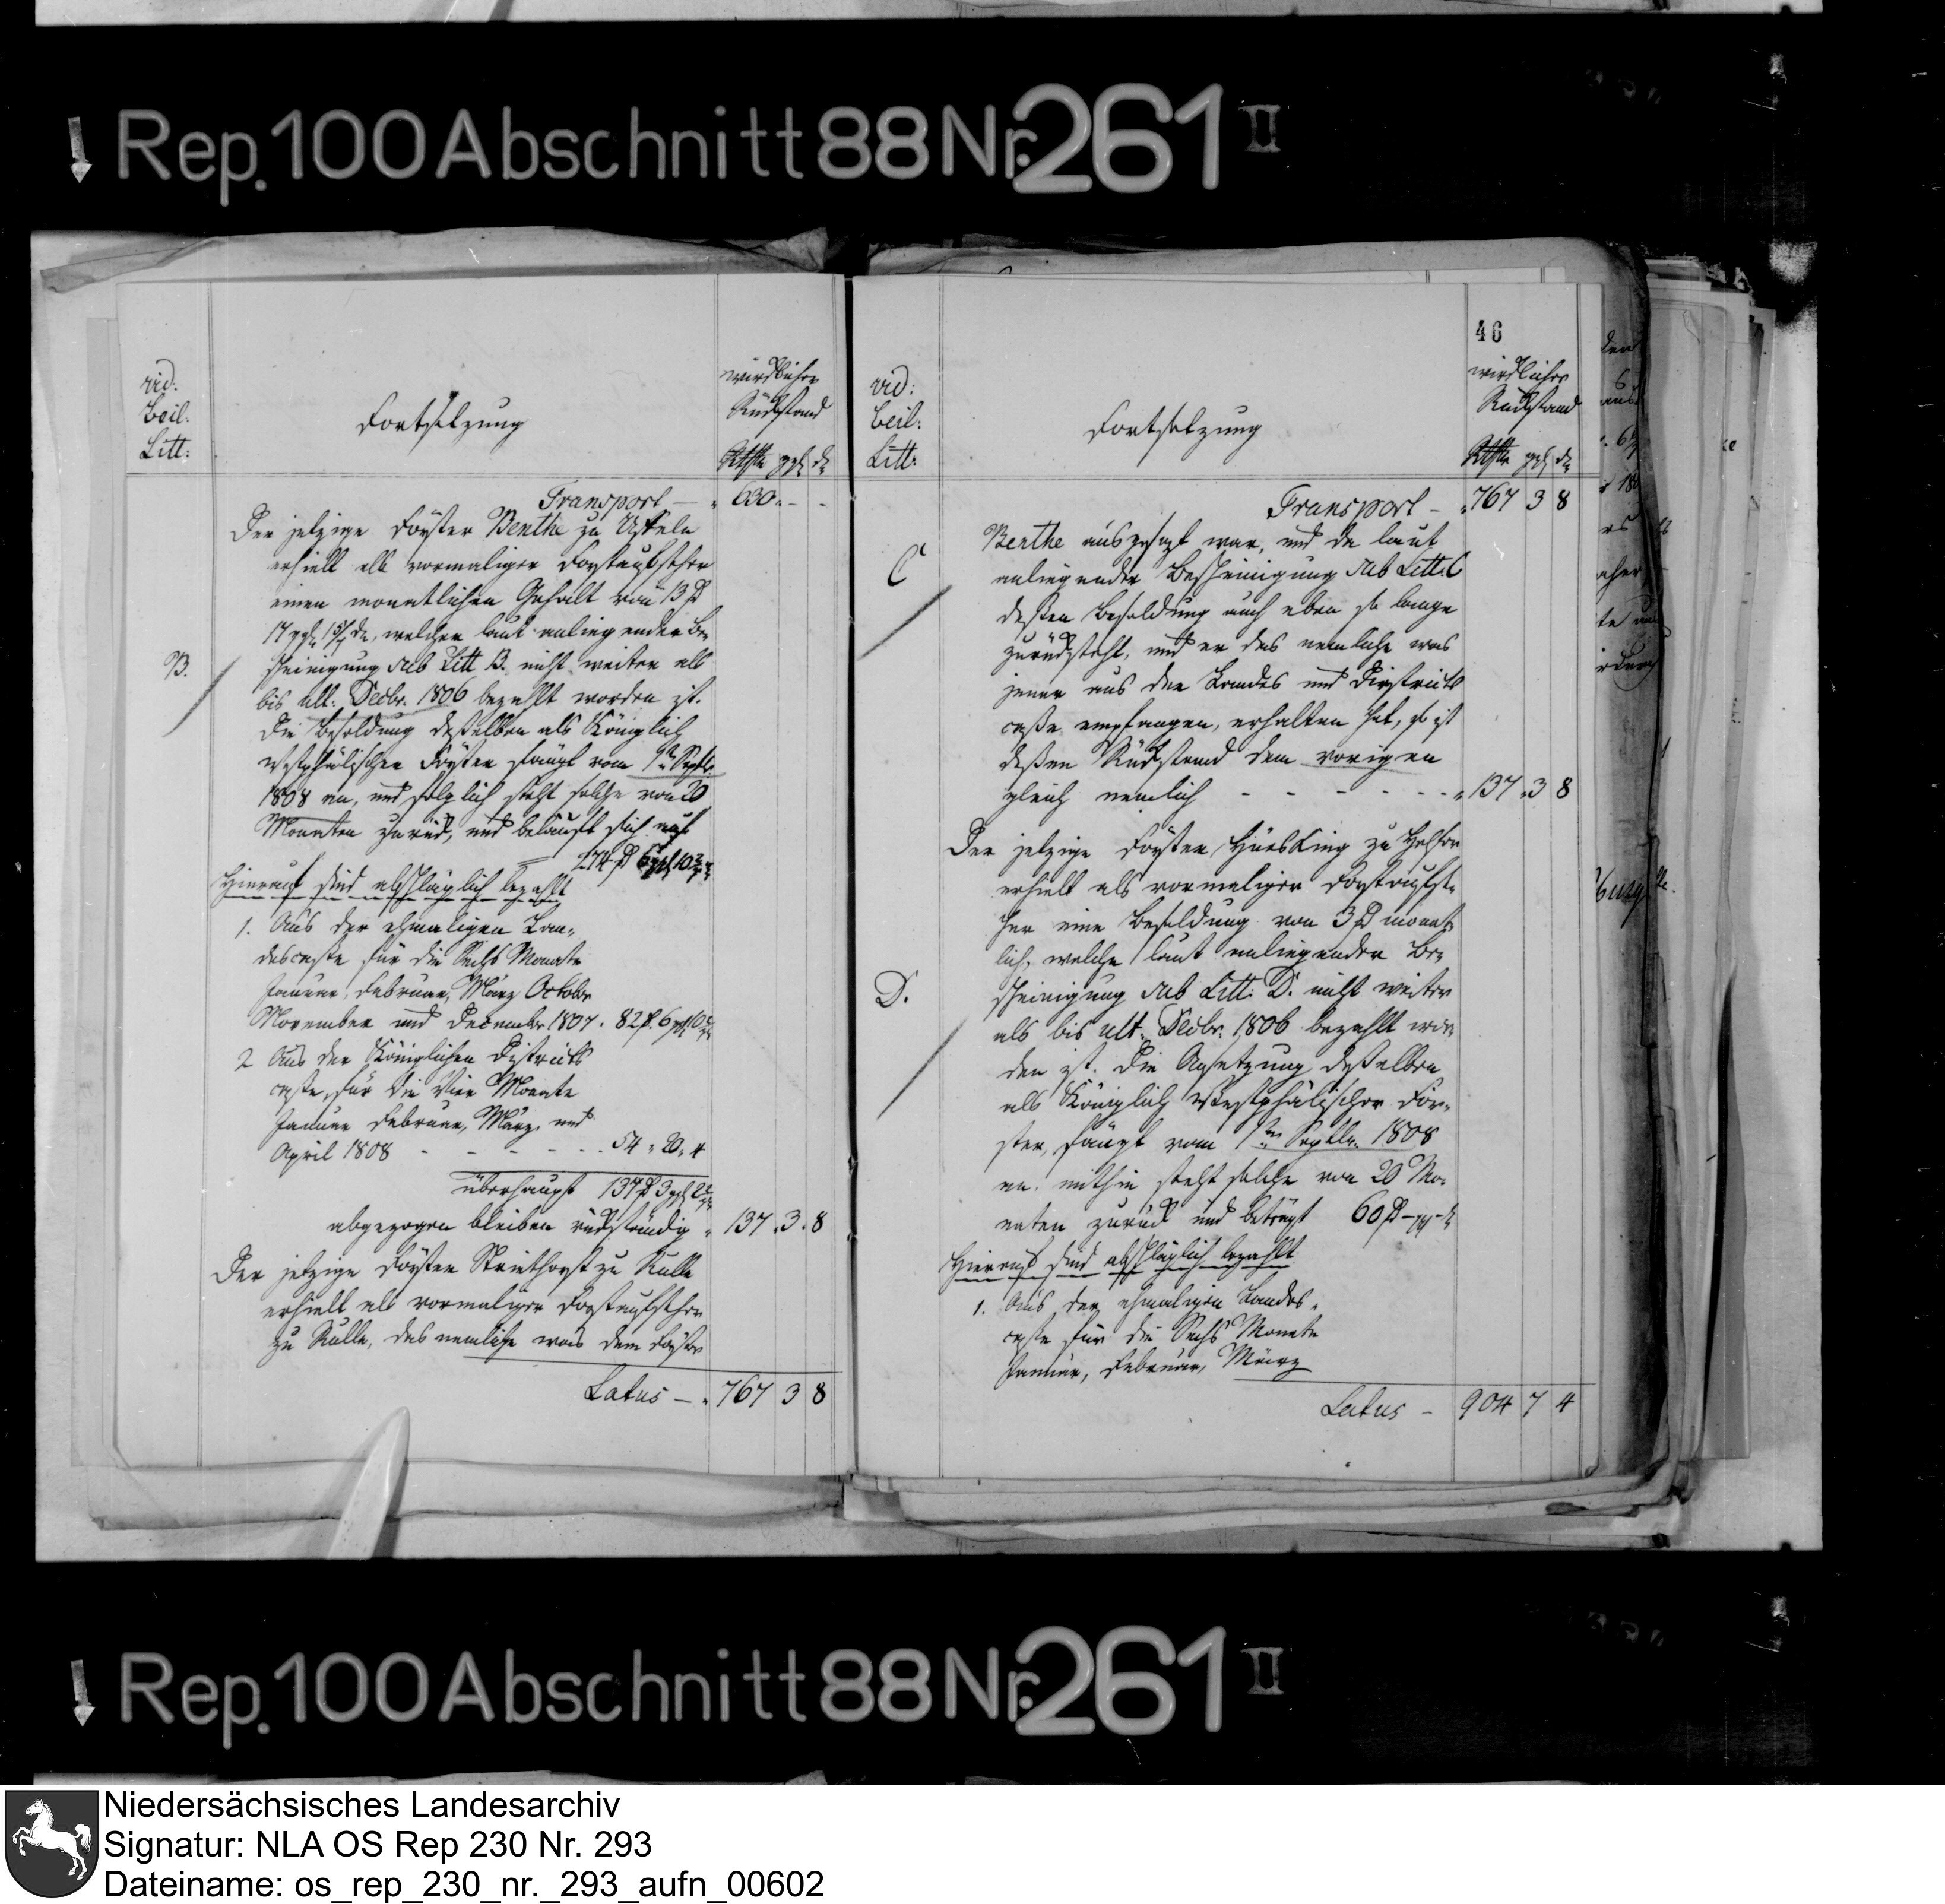 Rep. 100 Abschnitt 88 Nr. 261 II
vid:
Beil:
Litt:
Fortsetzung
wirklicher
Rückstand
Rthlr ggl d
Transport — 630 - -
Der jetzige Förster Benthe zu
erhielt als vormaliger Forstaufseher
einen monatlichen Gehalt von 13
17 ggl, welcher laut anliegender Be-
B.
scheinigung sub Litt B. nicht weiter als
bis ult: Decbr. 1806 bezahlt worden ist.
Die Besoldung deßelben als Königlich
Westphälischer Förster fängt vom 1ten Septbr
1808 an, und folglich steht solche von 20
Monaten zurück, und beläuft sich auf
274
Hierauf sind abschläglich bezahlt
1. Aus der ehmaligen Lan-
descasse für die Sechs Monate
Januar, Februar, März October
November und December 1807. 82
2 Aus der Königlichen Districts
casse, für die Vier Monate
Januar Februar, März und
April 1808 - - - - - 54 " 20 " 4
überhaupt 137
abgezogen bleiben rückständig " 137. 3. 8
Der jetzige Förster Striethorst zu Rulle
erhielt als vormaliger Forstaufseher
zu Rulle, das nemliche was dem Förster
Latus — 767 3 8
46
vid:
Beil:
Litt:
Fortsetzung
wirklicher
Rückstand
Rthlr ggl d
Transport — 767 3 8
Benthe ausgesezt war, und da laut
C
anliegender Bescheinigung sub Litt. C
deßen Besoldung auch eben so lange
zurücksteht, und er das nemliche was
jener aus der Landes und Districts
casse empfangen, erhalten hat, so ist
deßen Rückstand dem vorigen
gleich nemlich - - - - - - 137 " 3 8
Der jetzige Förster zu
erhielt als vormaliger Forstaufse-
her eine Besoldung von 3 monat-
lich, welche laut anliegender Be-
D.
scheinigung sub Litt: D. nicht weiter
als bis ult. Decbr. 1806 bezahlt wor-
den ist. Die Ansetzung deßelben
als Königlich Westphälischer För-
ster, fängt vom 1ten Septbr. 1808
an. mithin steht solche von 20 Mo-
naten zurück und beträgt 60
Hierauf sind abschläglich bezahlt
1. Aus der ehmaligen Landes-
casse für die Sechs Monate
Januar, Februar, März
Latus — 904 7 4
Rep. 100 Abschnitt 88 Nr. 261 II
Niedersächsisches Landesarchiv
Signatur: NLA OS Rep 230 Nr. 293
Dateiname: os_rep_230_nr._293_aufn_00602